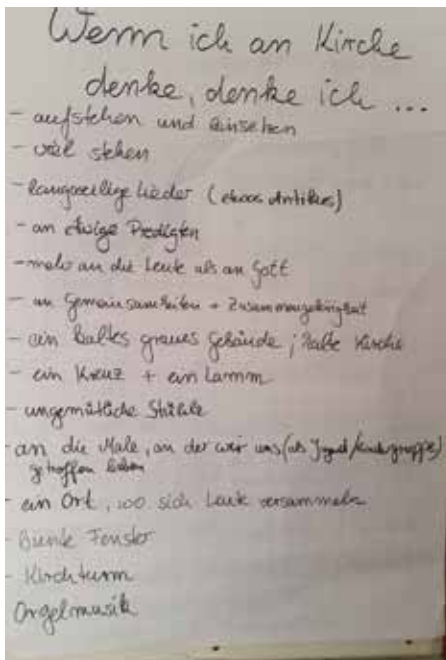 Wenn ich an Kirche
denke, denke ich ...
- aufstehen und hinsehen
- viel stehen
- langweilige Lieder (etwas Antikes)
- an ewige Predigten
- mehr an die Leute als an Gott
- an Gemeinsamkeiten + Zusammengehörigkeit
- ein kaltes graues Gebäude; kalte Kirche
- ein Kreuz + ein Lamm
- ungemütliche Stühle
- an die Male, an der wir uns (als Jugend/Kindergruppe)
getroffen haben
- ein Ort, wo sich Leute versammeln
- Bunte Fenster
- Kirchturm
Orgelmusik